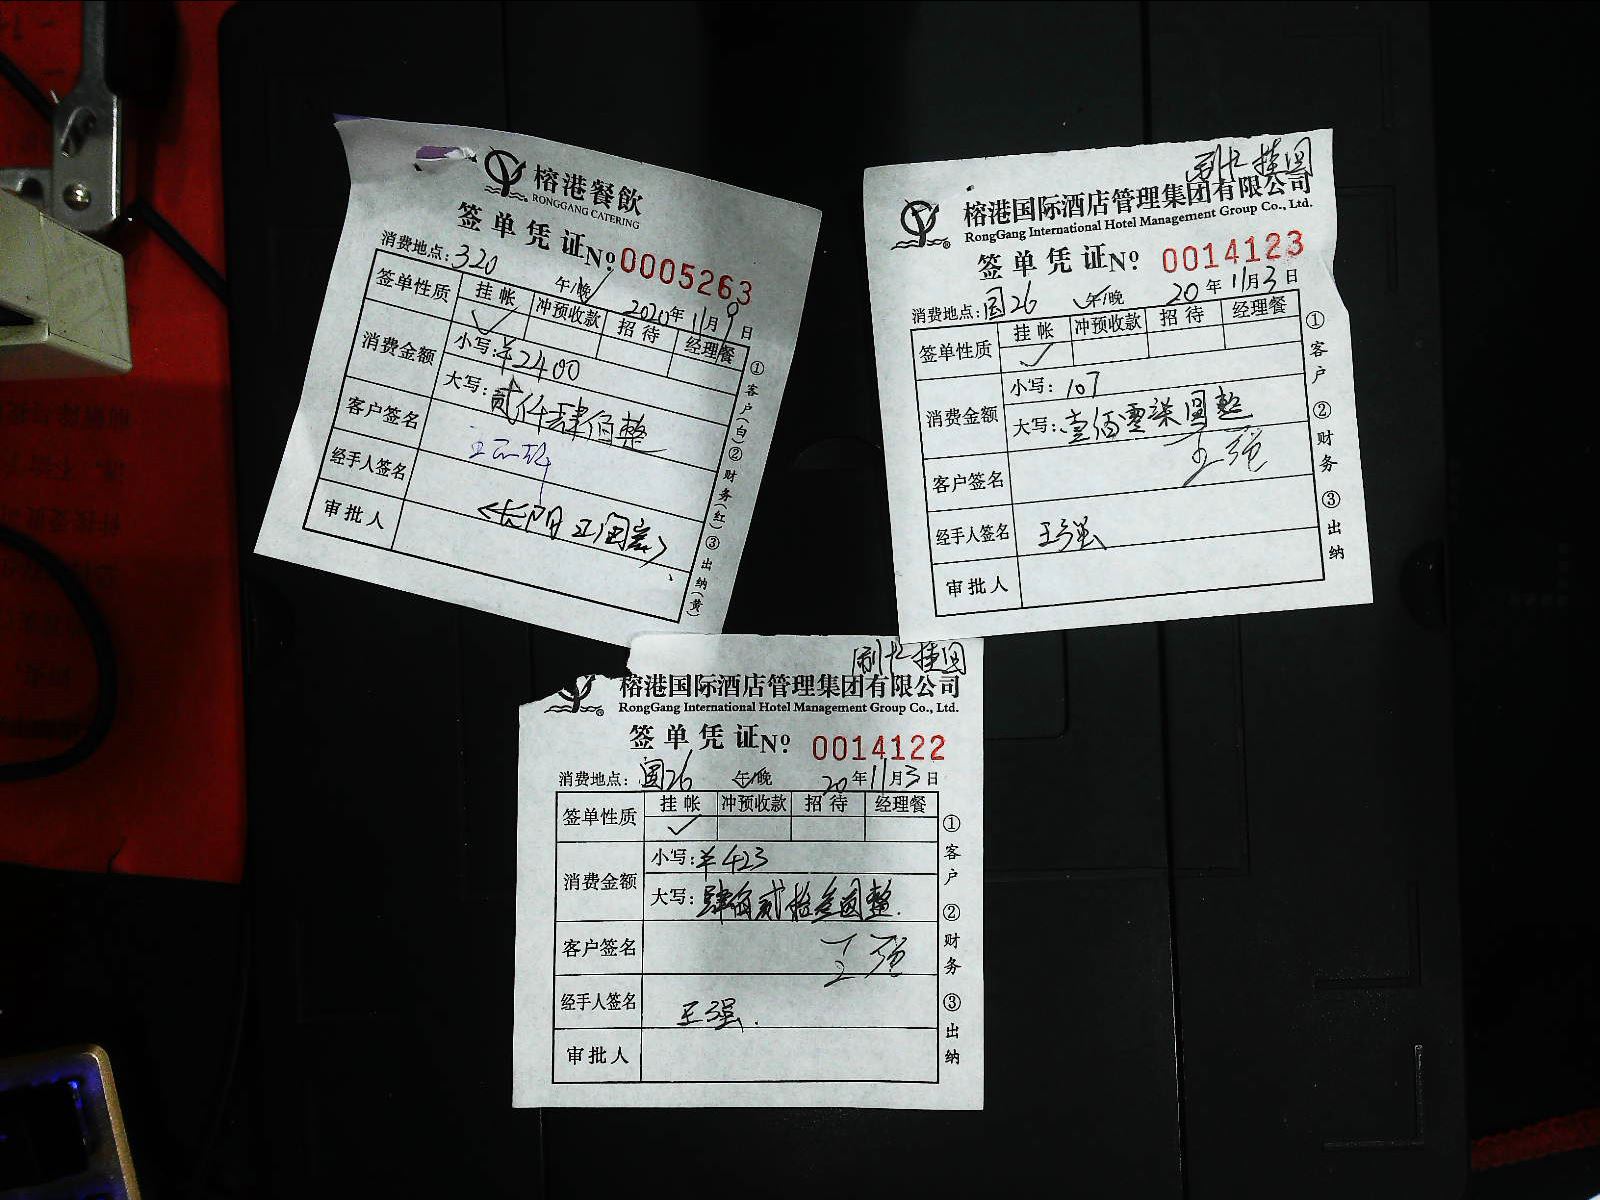 榕港餐飲
RONGGANG CATERING
签单凭证№0005263
消费地点:320 午/晚 2020年11月9日
签单性质 挂帐 冲预收款 招待 经理餐
✓
消费金额 小写:¥2400
大写:贰仟肆佰整
客户签名
经手人签名
审批人
①客户(白)②财务(红)③出纳(黄)
榕港国际酒店管理集团有限公司
RongGang International Hotel Management Group Co., Ltd.
签单凭证№ 0014123
消费地点:国26 午/晚 20年11月3日
签单性质 挂帐 冲预收款 招待 经理餐
✓
消费金额 小写:107
大写:壹佰零柒圆整
客户签名 王强
经手人签名 王强
审批人
①客户 ②财务 ③出纳
榕港国际酒店管理集团有限公司
RongGang International Hotel Management Group Co., Ltd.
签单凭证№ 0014122
消费地点:国26 午/晚 20年11月3日
签单性质 挂帐 冲预收款 招待 经理餐
✓
消费金额 小写:¥423
大写:肆佰贰拾叁圆整
客户签名 王强
经手人签名 王强
审批人
①客户 ②财务 ③出纳